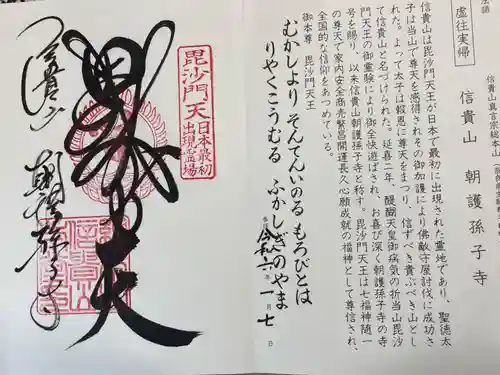 法語
虚往実帰
信貴山真言宗総本山
信貴山 朝護孫子寺
信貴山は毘沙門天王が日本で最初に出現された霊地であり、聖徳太
子は当山で尊天を感得されその御加護により佛敵守屋討伐に成功さ
れた。よって太子は報恩に尊天をまつり、信ずべき貴ぶべき山とし
て信貴山と名づけられた。延喜二年、醍醐天皇御病気の折当山毘沙
門天王の御霊験により御全快遊ばされ、お喜び深く朝護孫子寺の寺
号を賜り、以来信貴山朝護孫子寺と称す。毘沙門天王は七福神随一
の尊天で家内安全商売繁昌開運長久心願成就の福神として尊信され、
全国的な信仰をあつめている。
御本尊 毘沙門天王
むかしより そんてんいのる もろびとは
りやくこうむる ふかしぎのやま
令和六年 一月 七日
毘沙門天
日本最初
出現霊場
信貴山
毘沙門天
朝護孫子寺